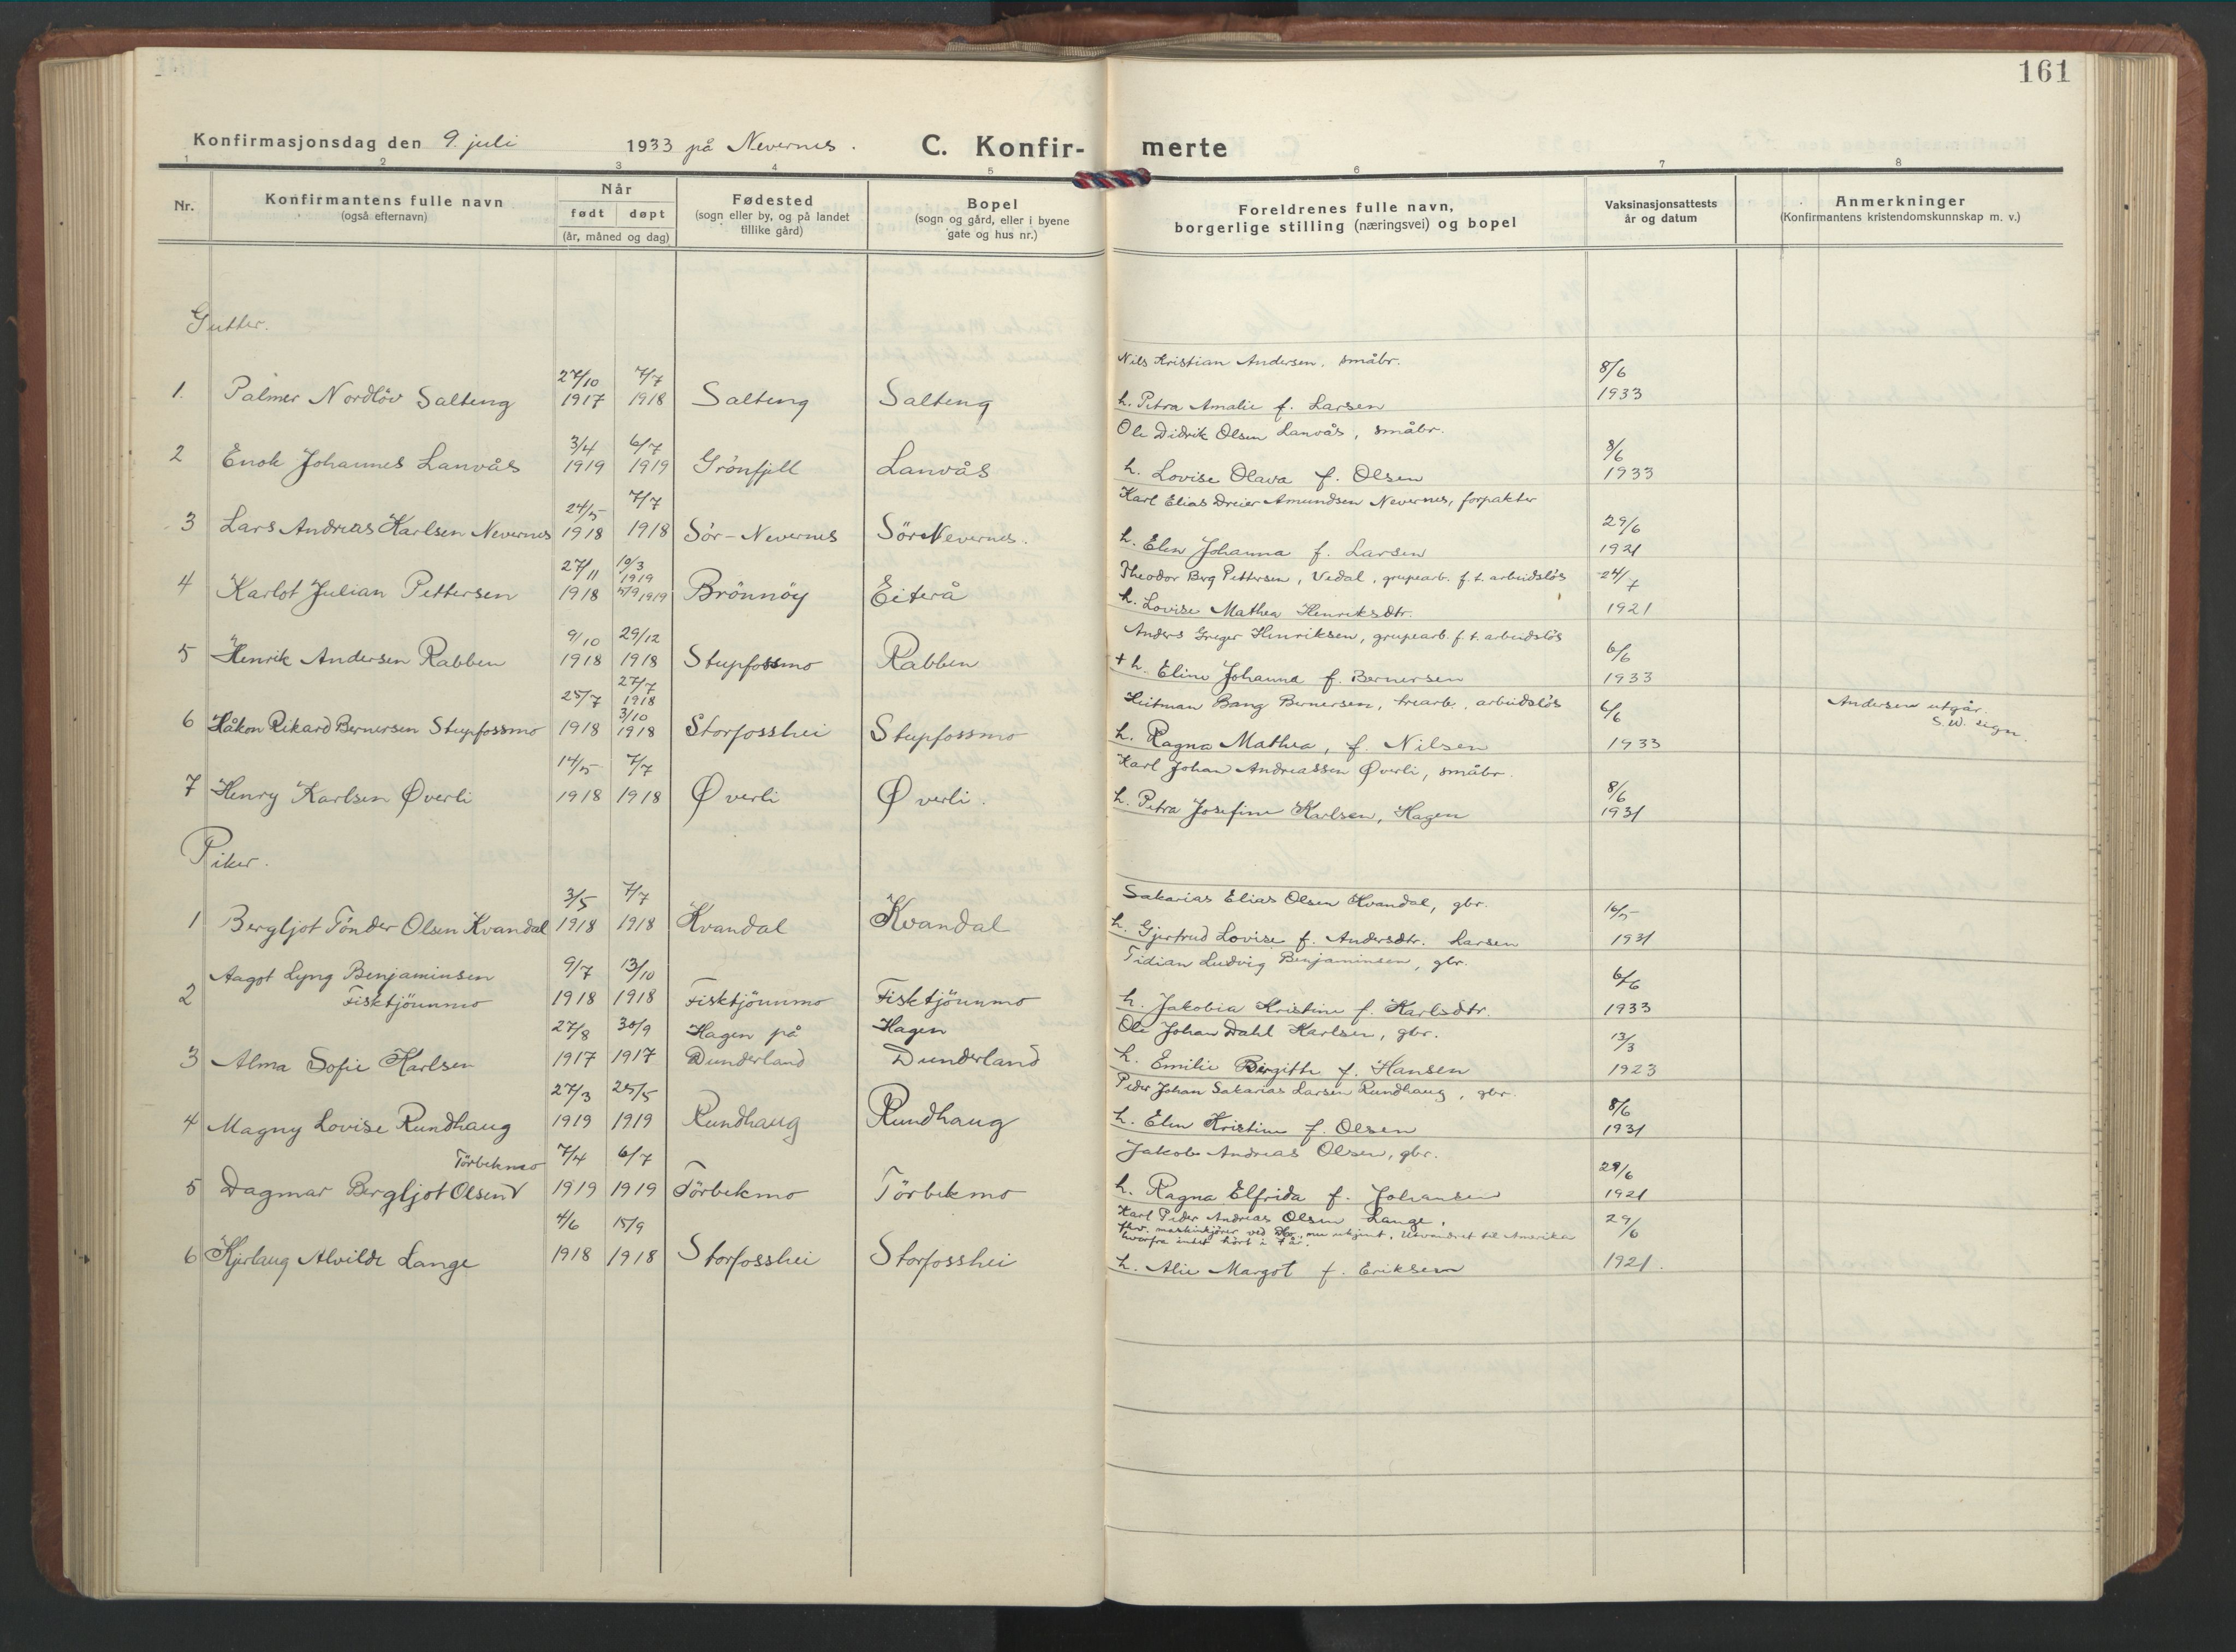 161
Konfirmasjonsdag den 9. juli 1933 på Nevernes. C. Konfir- merte
1 2 3 4 5 6 7 8
Nr.
Konfirmantens fulle navn
(også efternavn)
Når
født døpt
(år, måned og dag)
Fødested
(sogn eller by, og på landet
tillike gård)
Bopel
(sogn og gård, eller i byene
gate og hus nr.)
Foreldrenes fulle navn,
borgerlige stilling (næringsvei) og bopel
Vaksinasjonsattests
år og datum
Anmerkninger
(Konfirmantens kristendomskunnskap m. v.)
Gutter.
27/10 7/7 Nils Kristian Andersen, småbr. 8/6
1. Palmer Nordlöv Salteng 1917 1918 Salteng Salteng h. Petra Amalie f. Larsen 1933
3/4 6/7 Ole Didrik Olsen Lanvås, småbr. 8/6
2 Enok Johannes Lanvås 1919 1919 Grönfjell Lanvås h. Lovise Olava f. Olsen 1933
24/5 7/7 Karl Elias Dreier Amundsen Nevernes, forpakter 29/6
3 Lars Andreas Karlsen Nevernes 1918 1918 Sör-Nevernes Sör Nevernes. h. Elen Johanna f. Larsen 1921
27/11 10/3 1919 Theodor Berg Pettersen, Vedal, grupearb. f. t. arbeidslös 24/7
4 Karlot Julian Pettersen 1918 5/9 1919 Brönnöy Eiterå h. Lovise Mathea Henriksdtr. 1921
9/10 29/12 Anders Greger Henriksen, grupearb. f. t. arbeidslös 6/6
5 Henrik Andersen Rabben 1918 1918 Stupfossmo Rabben + h. Eline Johanna f. Bernersen 1933
25/7 27/7 1918 Heitman Bang Bernersen, trearb., arbeidslös 6/6 Andersen utgår.
S.W. sign.
6 Håkon Rikard Bernersen Stupfossmo 1918 3/10 1918 Storfosshei Stupfossmo h. Ragna Mathea, f. Nilsen 1933
14/5 7/7 Karl Johan Andreassen Øverli, småbr. 8/6
7 Henry Karlsen Øverli 1918 1918 Øverli Øverli. h. Petra Josefine Karlsen, Hagen 1931
Piker.
3/5 7/7 Sakarias Elias Olsen Kvandal, gbr. 16/5
1 Bergljot Tönder Olsen Kvandal 1918 1918 Kvandal Kvandal h. Gjertrud Lovise f. Andersdtr. Larsen 1931
Aagot Lyng Benjaminsen 9/7 13/10 Tidian Ludvig Benjaminsen, gbr. 6/6
2 Fisktjönnmo 1918 1918 Fisktjönnmo Fisktjönnmo h. Jakobia Kristine f. Karlsdtr. 1933
27/8 30/9 Hagen på Hagen Ole Johan Dahl Karlsen, gbr. 13/3
3 Alma Sofie Karlsen 1917 1917 Dunderland Dunderland h. Emilie Birgitte f. Hansen 1923
27/3 25/5 Peder Johan Sakarias Larsen Rundhaug, gbr. 8/6
4 Magny Lovise Rundhaug 1919 1919 Rundhaug Rundhaug h. Elen Kristine f. Olsen 1931
Törbekmo 7/4 6/7 Jakob Andreas Olsen, gbr. 29/6
5 Dagmar Bergljot Olsen V 1919 1919 Törbekmo Törbekmo h. Ragna Elfrida f. Johansen 1921
4/6 15/9 Karl Peder Andreas Olsen Lange, 29/6
fhv. maskinkjörer ved nu ukjent, Utvandret til Amerika
hvorfra intet hört i 7 år.
6 Kjerlaug Alvilde Lange 1918 1918 Storfosshei Storfosshei h. Alie Margot f. Eriksen 1921.